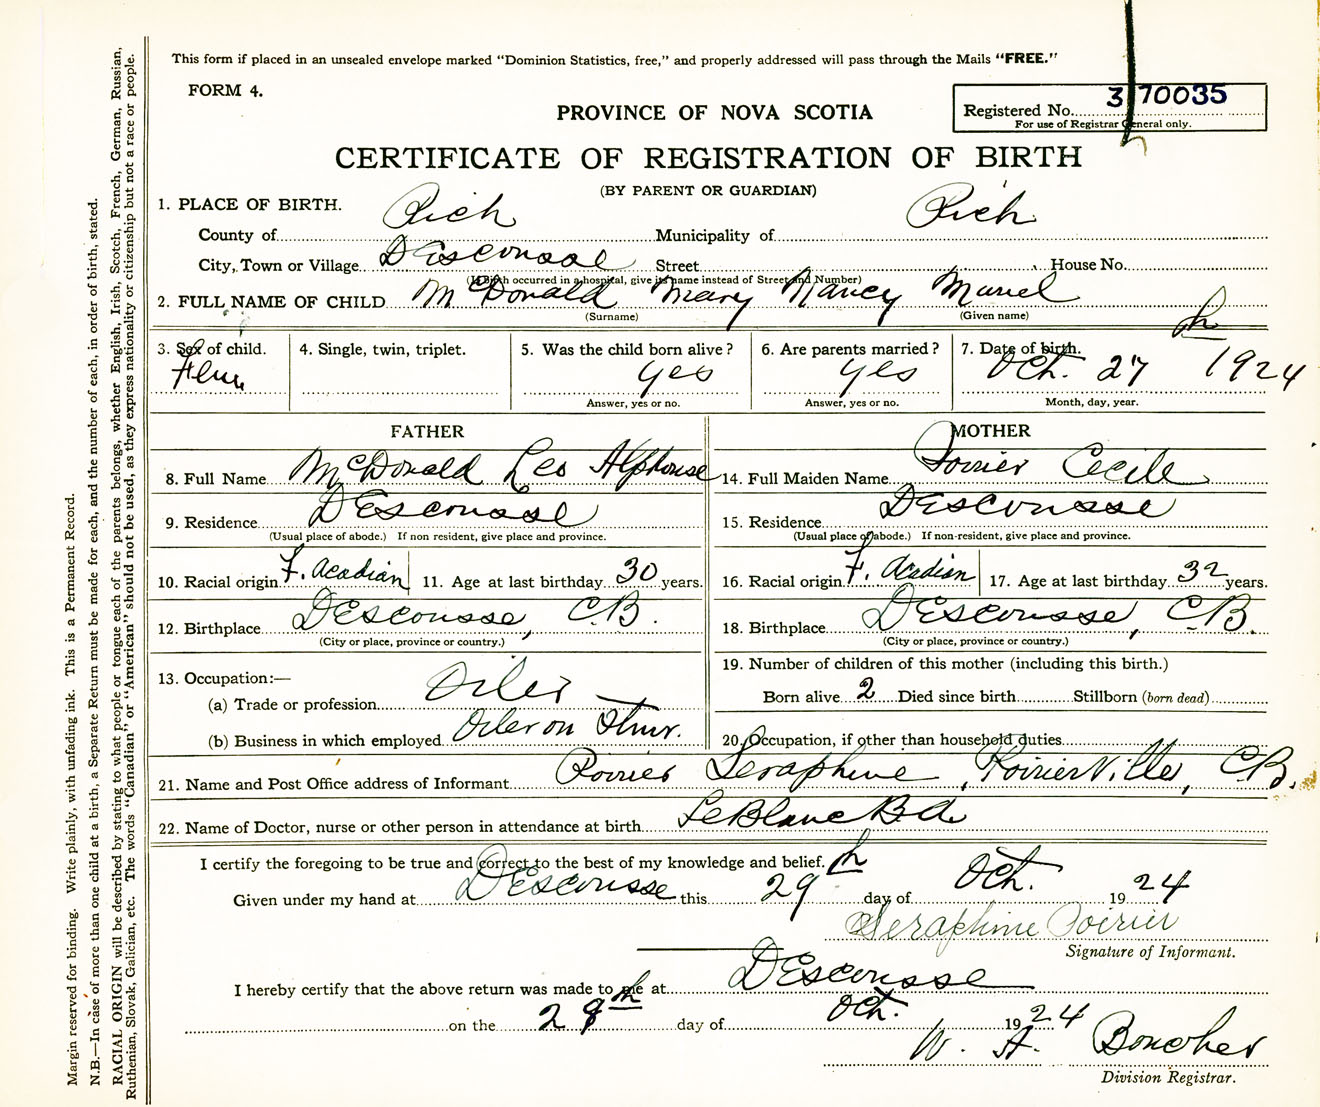 This form if placed in an unsealed envelope marked "Dominion Statistics, free," and properly addressed will pass through the Mails "FREE."
FORM 4.
PROVINCE OF NOVA SCOTIA
Registered No. 3 70035
For use of Registrar General only.
CERTIFICATE OF REGISTRATION OF BIRTH
(BY PARENT OR GUARDIAN)
1. PLACE OF BIRTH.
County of Rich Municipality of Rich
City, Town or Village DEscousse Street House No.
(If Birth occurred in a hospital, give its name instead of Street and Number)
2. FULL NAME OF CHILD McDonald Mary Nancy Muriel
(Surname) (Given name)
3. Sex of child. 4. Single, twin, triplet. 5. Was the child born alive? 6. Are parents married? 7. Date of birth.
Fem yes yes Oct. 27 h 1924
Answer, yes or no. Answer, yes or no. Month, day, year.
FATHER MOTHER
8. Full Name McDonald Leo Alphonse 14. Full Maiden Name Poirier Cecile
9. Residence DEscousse 15. Residence DEscousse
(Usual place of abode.) If non resident, give place and province. (Usual place of abode.) If non-resident, give place and province.
10. Racial origin F. Acadian 11. Age at last birthday 30 years. 16. Racial origin F. Acadian 17. Age at last birthday 32 years.
12. Birthplace DEscousse, C.B. 18. Birthplace DEscousse, C.B.
(City or place, province or country.) (City or place, province or country.)
13. Occupation:— 19. Number of children of this mother (including this birth.)
(a) Trade or profession Oiler Born alive 2 Died since birth Stillborn (born dead)
(b) Business in which employed Oiler on Stmr. 20. Occupation, if other than household duties
21. Name and Post Office address of Informant Poirier Seraphine, PoirierVille, C.B.
22. Name of Doctor, nurse or other person in attendance at birth LeBlanc
I certify the foregoing to be true and correct to the best of my knowledge and belief.
Given under my hand at DEscousse this 29 h day of Oct. 1924
Seraphine Poirier
Signature of Informant.
I hereby certify that the above return was made to me at DEscousse
on the 29 h day of Oct. 1924
W. A. Boucher
Division Registrar.
Margin reserved for binding. Write plainly, with unfading ink. This is a Permanent Record.
N.B.—In case of more than one child at a birth, a Separate Return must be made for each, and the number of each, in order of birth, stated.
RACIAL ORIGIN will be described by stating to what people or tongue each of the parents belongs, whether English, Irish, Scotch, French, German, Russian,
Ruthenian, Slovak, Galician, etc. The words "Canadian" or "American" should not be used, as they express nationality or citizenship but not a race or people.